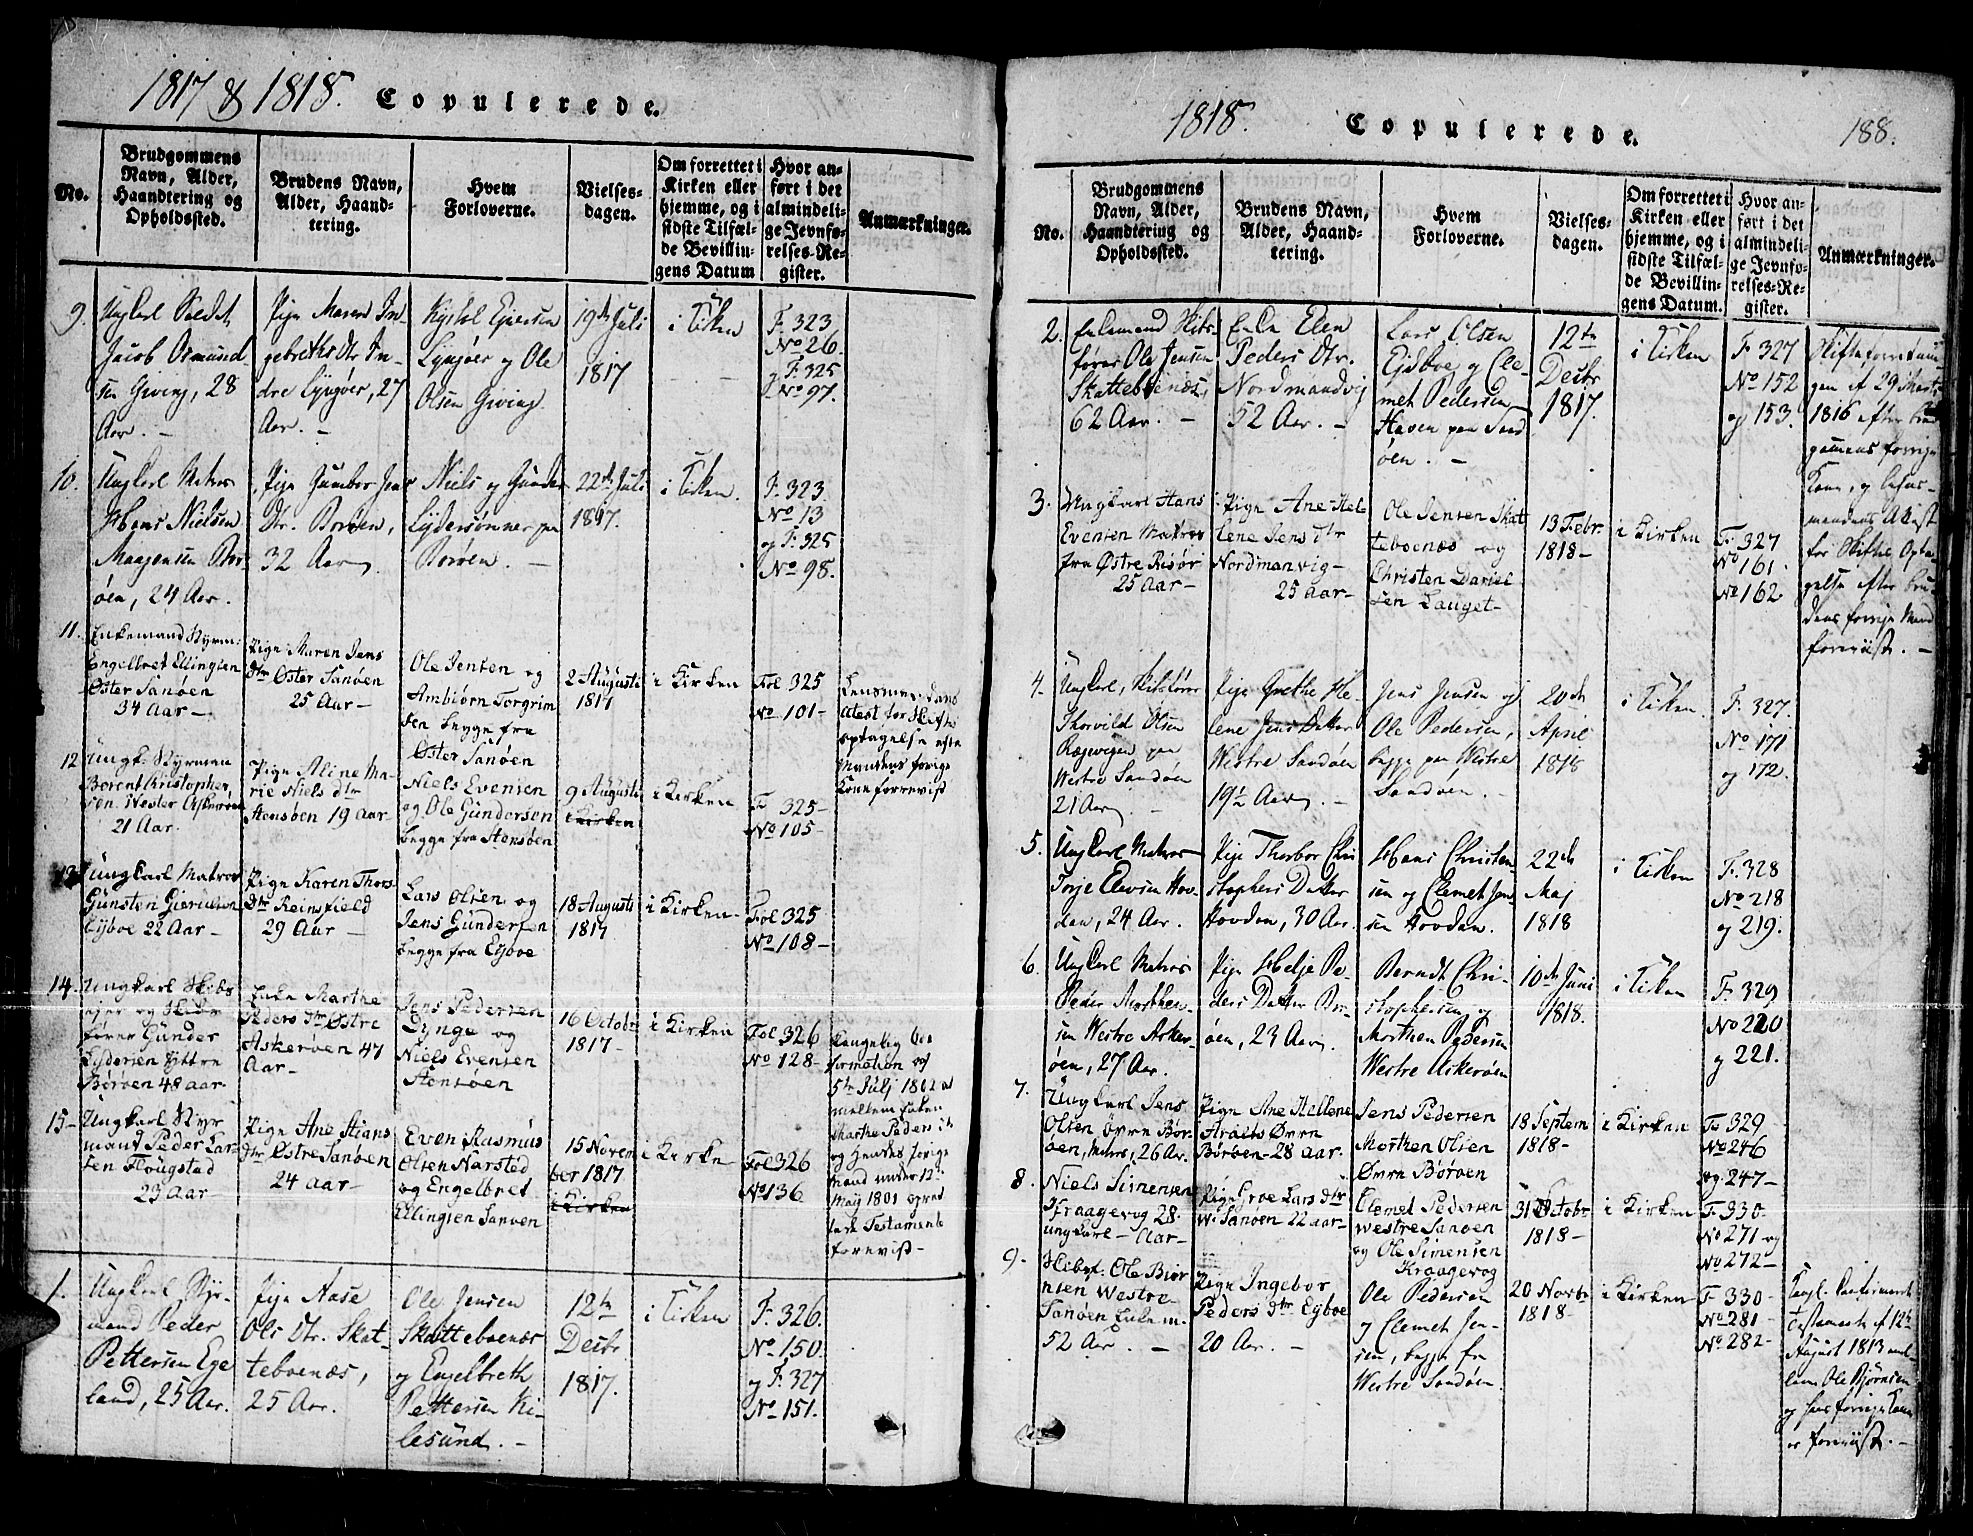 1817 & 1818. Copulerede.
No.
Brudgommens
Navn, Alder,
Haandtering og
Opholdssted.
Brudens Navn,
Alder, Haand-
tering.
Hvem
Forloverne.
Vielses-
dagen.
Om forrettet i
Kirken eller
hjemme, og i
sidste Tilfæl-
de Bevillin-
gens Datum
Hvor an-
ført i det
almindeli-
ge Jevnfø-
relses-Re-
gister.
Anmærkninger.
9.
Ungkarl
Jacob Osmund
sen Giving, 28
Aar. –
Pige Maren In-
gebreths Dtr. In-
dre Lyngøer, 27
Aar. –
Lyngøer og Ole
Olsen Giving
19de Juli
1817
i Kirken
F. 323
No 26.
og F. 325
No 97.
10.
Ungkarl Matros
Hans Nielsen
Bor-
øen, 24 Aar.
Pige Gumbor Jens
Dtr. Borøen,
32 Aar.
Niels og Gunder
Lydersønner paa
Borøen. –
22de Juli
1817.
i Kirken.
F. 323.
No 13
og F. 325
No 98.
11.
Enkemand Styrm:
Engelbret Ellingsen
Øster Sanøen
34 Aar –
Pige Maren Jens
dtr Øster Sanøen
25 Aar –
Ole Jensen og
Ambiørn Torgrim
sen begge fra
Øster Sanøen
2 Augusti
1817
i Kirken
Fol 325
No 101 –
Atest for Skiftes
optagelse efter
Mandens forige
Kone forrevist
12
Ungk. Styrman
Borent Christopher
sen Wester Askerøen
21 Aar.
Pige Aline Ma-
rie Niels dtr
Stensøen 19 aar
Niels Evensen
og Ole Gundersen
begge fra Stensøen
9 Augusti
i Kirken
i Kirken
Fo 325 –
No 105 –
13
Ungkarl Matros
Gunsten Gieruldsen
Eyboe 22 Aar –
Pige Karen Thors
dtr Reinsfield
29 Aar –
Lars Olsen og
Jens Gundersen
begge fra Eyboe
18 Augusti
1817
i Kirken –
Fol 325
No 108 –
14.
Ungkarl Skibs
ejer og Skibs
fører Gunder
Lydersen Yttre
Børøen 48 aar
Enke Marthe
Peders dtr Østre
Askerøen 47
Aar –
Jens Pedersen
Lynge og
Niels Evensen
Stensøen
16 Octobr
1817 –
i Kirken
Fol 326
No 128 –
Kongelig Con
formation af
5te Julj 1802 at
mellem Enken
Marthe Peders dtr
og hendes forige
mand under 12
Maij 1801 opret
tede Testamente
forevist –
15 –
Ungkarl Styr
mand Peder Lar-
sen Flougstad
23 Aar –
Pige Ane Stians
dtr Østre Sanøen
24 aar –
Even Rasmus
Olsen Narsted
og Engelbret
Ellingsen Sanøen
15 Novem
ber 1817
i Kirken
i Kirken
Fol 326
No 136
1.
Ungkarl Styr-
mand Peder
Pettersen Ege
land, 25 Aar.
Pige Aase
Ols Dtr. Skat
teboenæs,
25 Aar.
Ole Jensen
Skatteboenæs
og Engelbreth
Pettersen Ki-
lesund. –
12te
Decbr
1817.
i Kirken
F. 326.
No 150
og F. 327
No 151.
1818. Copulerede. 188.
No.
Brudgommens
Navn, Alder,
Haandtering og
Opholdssted.
Brudens Navn,
Alder, Haand-
tering.
Hvem
Forloverne.
Vielses-
dagen.
Om forrettet i
Kirken eller
hjemme, og i
sidste Tilfæl-
de Bevillin-
gens Datum.
Hvor an-
ført i det
almindeli-
ge Jevnfø-
relses-Re-
gister.
Anmærkninger.
2.
Enkemand Skibs-
fører Ole Jensen
Skatteboenæs,
62 Aar. –
Enke Elen
Peders Dtr.
Nordmandvig
52 Aar. –
Lars Olsen
Ejdboe, og Cle-
met Pedersen
Haven paa Sand
øen. –
12te
Decbr
1817.
i Kirken
F. 327
No 152
og 153.
Skifteforretnin
gen af 29 Marts
1816 efter Brud
gommens forrige
Kone, og
mandens Attest
for Skifte Opta-
gelse efter Bru-
dens forrige Mand
foreviist. –
3.
Ungkarl Hans
Evensen Matros
fra Østre Risør
25 aar –
Pige Ane Hel
lene Jens dtr
Nordmanvig –
25 aar –
Ole Jensen Skat
teboenæs og
Christen Daniel
sen Lauget –
13 Febr.
1818 –
i Kirken
Fo 327
No 161.
No 162
4.
Ungkarl, Skibsfører
Thorvild Olsen
Ragevigen paa
Westre Sandøen
21 Aar. –
Pige Grethe He-
lene Jens Datter
Westre Sandøen
19½ Aar. –
Jens Jensen og
Ole Pedersen,
begge paa Westre
Sandøen. –
20de
April
1818
i Kirken.
F. 327.
No 171
og 172.
5.
Ungkarl Matros
Torje Elevsen Hov-
den, 24 Aar.
Pige Thorbor Chri
stophers Datter
Hovden, 30 Aar.
Hans Christen-
sen og Clemet Jen
sen Hovden.
22de
Maj
1818
i Kirken
F. 328
No 218
og 219.
6.
Ungkarl Matros
Peder Morthen-
sen Westre Asker-
øen, 27 Aar.
Pige Helje Pe-
ders Datter Bor-
øen, 23 Aar.
Berndt Chri-
stophersen og
Morthen Pedersen
Westre Askerøen
10de Juni
1818.
i Kirken
F. 329
No 220
og 221.
7.
Ungkarl Jens
Olsen øvre Bør-
øen, Matros, 26 Ar.
Pige Ane Hellene
Øvre
Børøen – 28 aar.
Jens Pedersen
Morthen Olsen
Øvre Børøen
18 Septem
1818 –
i Kirken
Fo 329
No 246
og 247 –
8.
Niels Simensen
Kraagevog 28.
ungkarl – Aar –
Pige Groe Lars dtr
W. Sanøen 22 aar –
Clemet Pedersen
westre Sanøen
og Ole Simensen
Kraagevog
31 Octobr
1818 –
i Kirken
F. 330
No 271 og
No 272 –
9.
Skibsf. Ole Biør
nsen Westre
Sanøen Enkem.
52 Aar. –
Pige Ingebor
Peders dtr Eyboe
20 Aar. –
Ole Pedersen
og Clemet Jen-
sen, begge fra
Westre Sandøen.
20 Novbr
1818 –
i Kirken
F. 330 –
No 281 –
No 282 –
Kongl. Confirmerede
Testamente af 12te
August 1813 mel-
lem Ole Bjørnsen
og hans forrige Kone
er foreviist. –